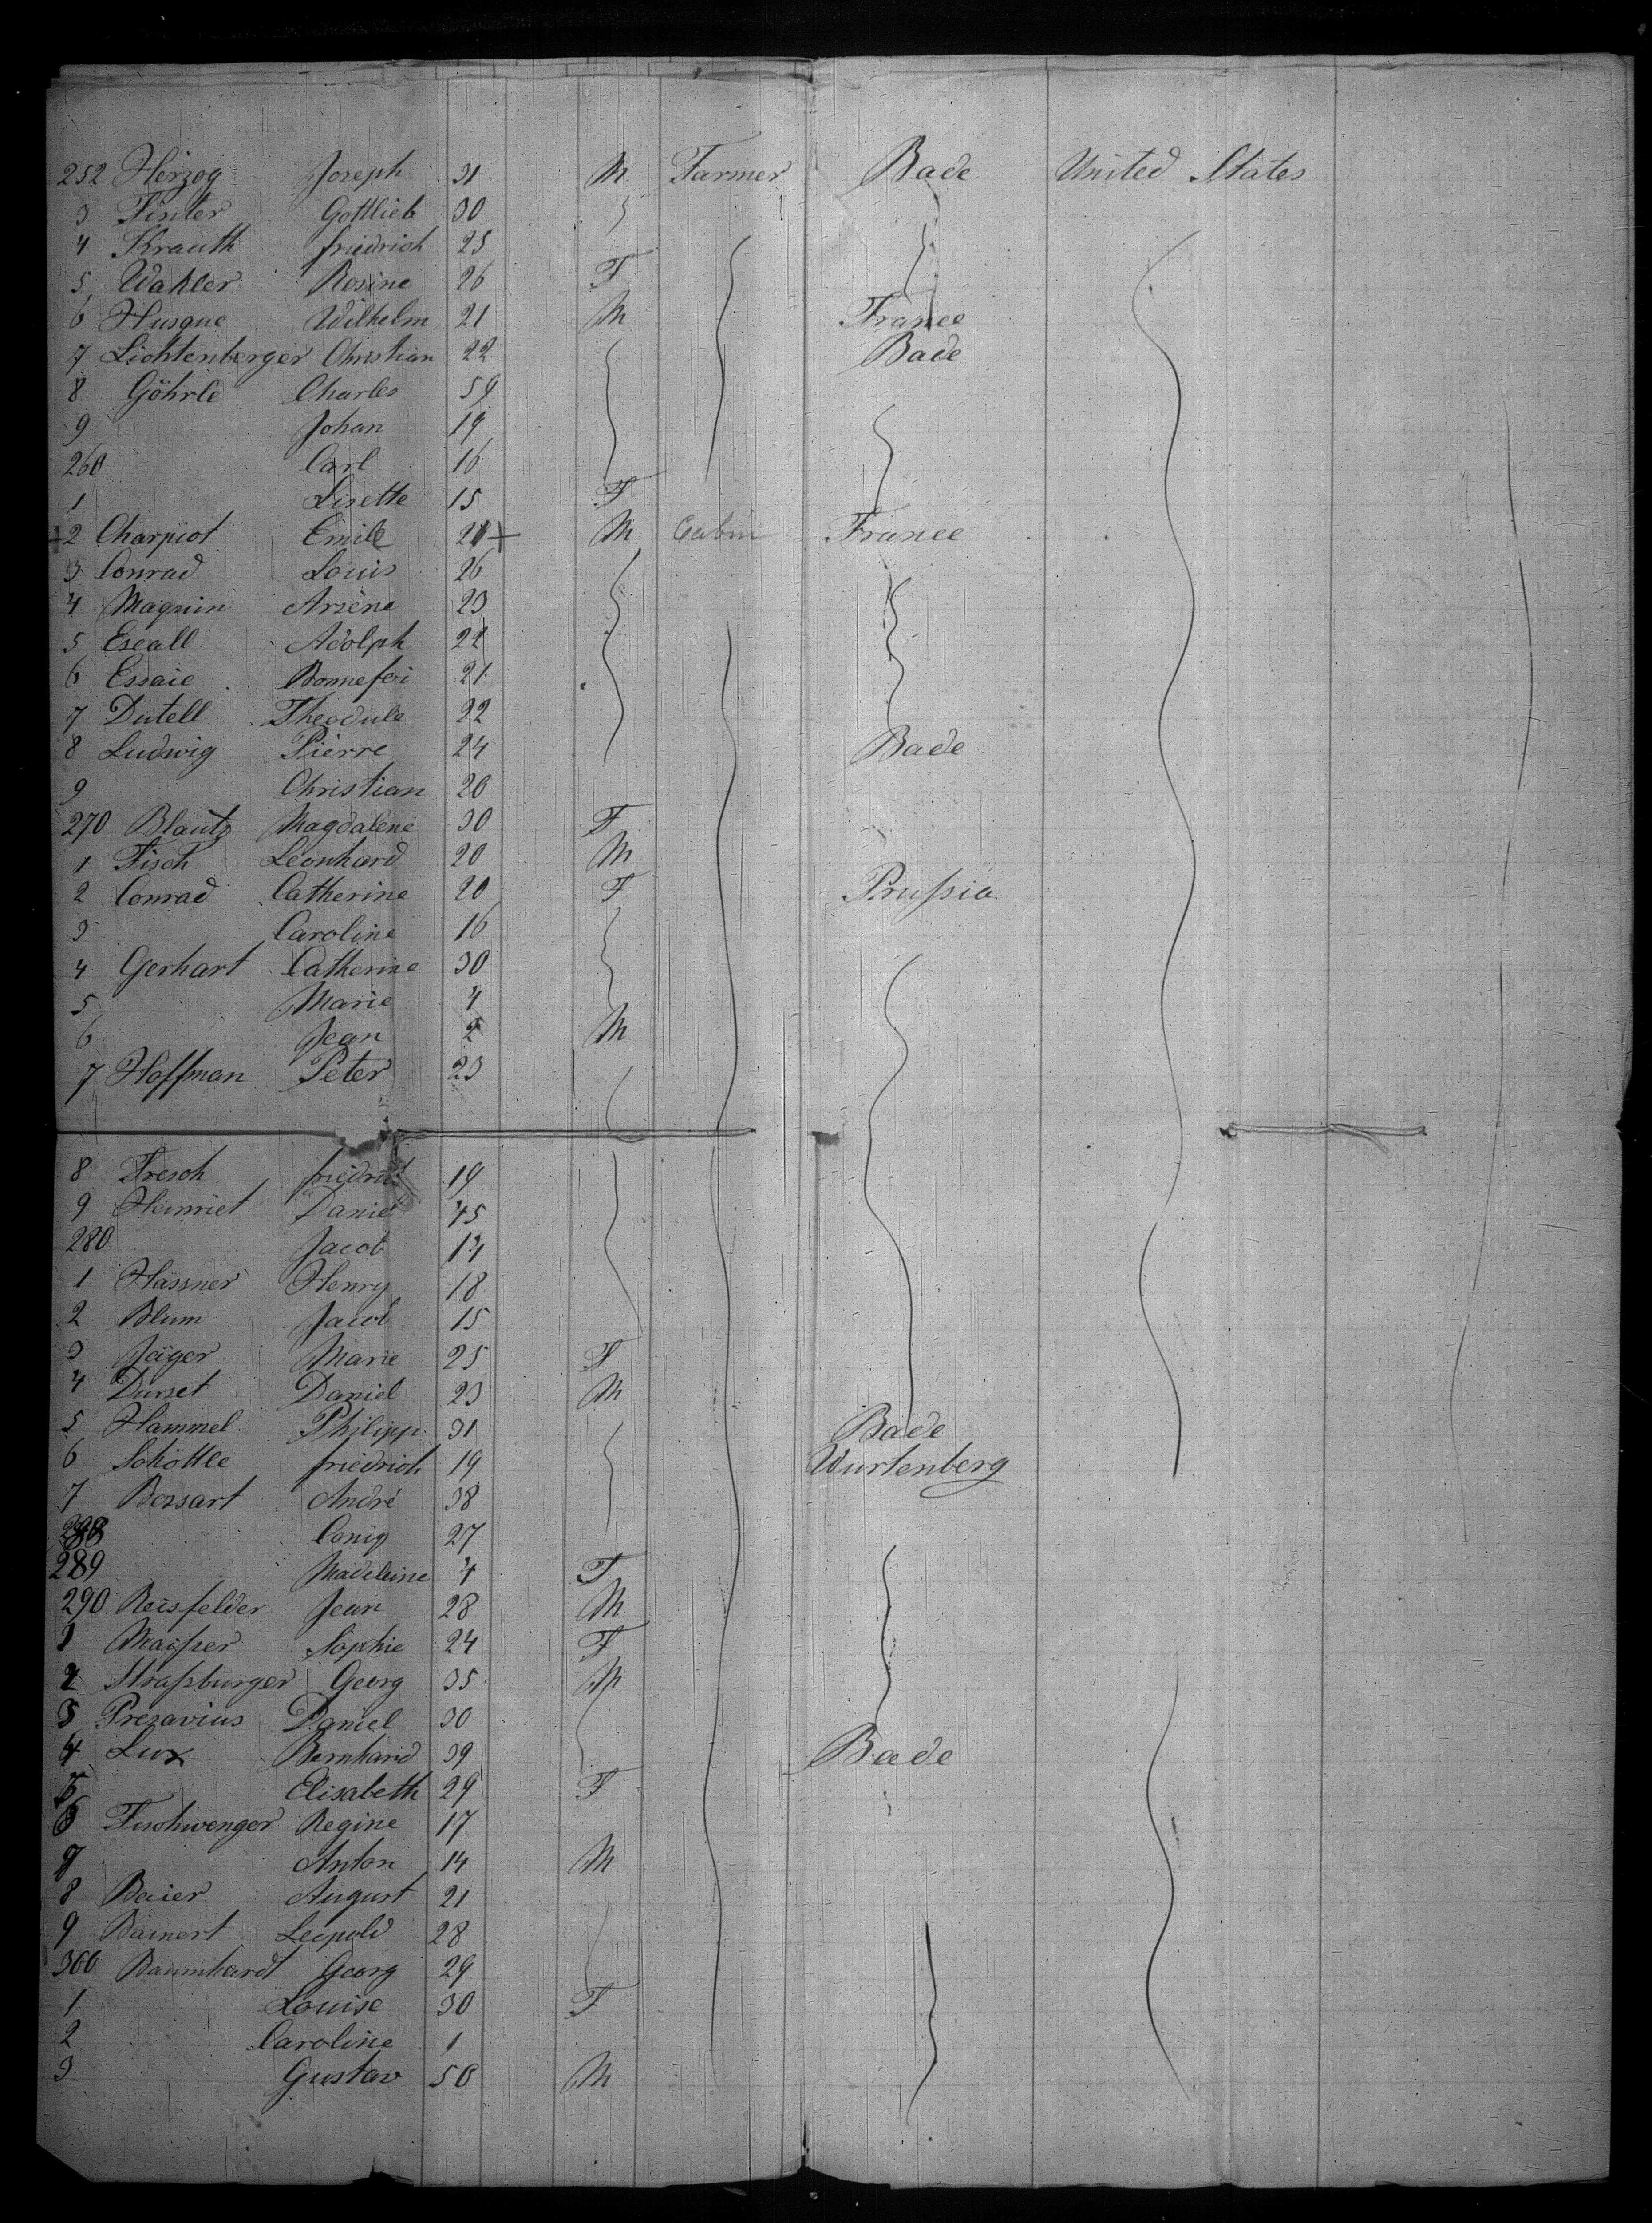 252 Herzog Joseph 31 M Farmer Bade United States
3 Finter Gottlieb 30
4 Krauth friedrich 25
5 Wahler Rosine 26 F
6 Husque Wilhelm 21 M France
7 Lichtenberger Christian 22 Bade
8 Göhrle Charles 59
9 Johan 19
260 Carl 16
1 Lisette 15 F
+2 Charpiot Emile 21+ M Cabin France
3 Conrad Louis 26
4 Magnin Arsène 23
5 Escall Adolph 22
6 Essaie Bonnefoi 21
7 Dutell Theodule 22
8 Ludwig Pierre 24 Bade
9 Christian 20
270 Blautz Magdalene 30 F
1 Fisch Leonhard 20 M
2 Conrad Catherine 20 F Prussia
3 Caroline 16
4 Gerhart Catherine 30
5 Marie 4
6 Jean 2 M
7 Hoffman Peter 23
8 Fresch 19
9 Heinriet Daniel 45
280 Jacob 14
1 Hassner Henry 18
2 Blum Jacob 15
3 Jäger Marie 25 F
4 Durset Daniel 23 M
5 Hammel Philipp 31 Bade
6 Schöttle friedrich 19 Wurtenberg
7 Bossart André 38
288 27
289 Madeleine 4 F
290 Reisfelder Jean 28 M
1 Sophie 24 F
2 Strassburger Georg 35 M
3 Prezavius Daniel 30
4 Lux Bernhard 39 Bade
5 Elisabeth 29 F
6 Regine 17
7 Anton 14 M
8 Baier August 21
9 Bainert Leopold 28
300 Baumhardt Georg 29
1 Louise 30 F
2 Caroline 1
3 Gustav 50 M